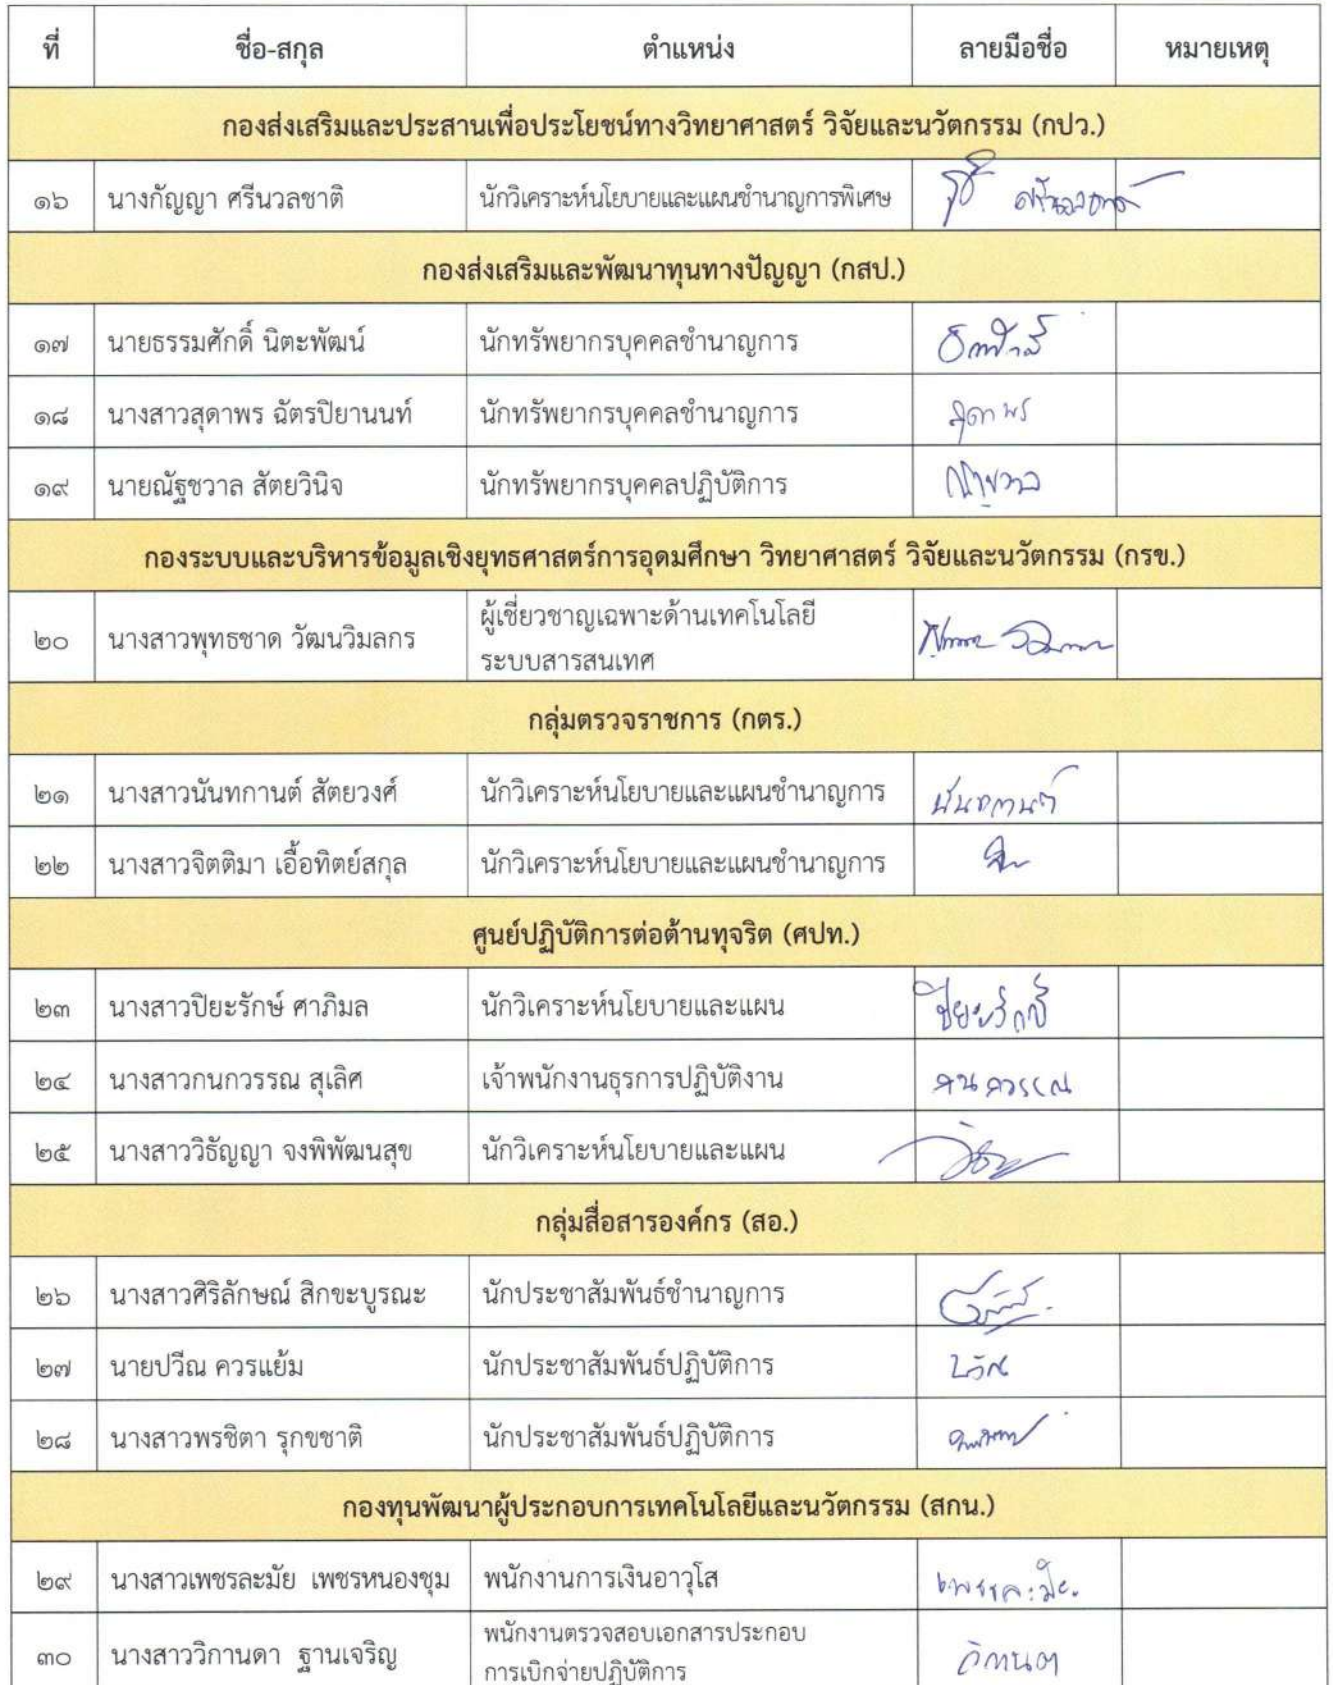 ที่ ชื่อ-สกุล ตำแหน่ง ลายมือชื่อ หมายเหตุ
กองส่งเสริมและประสานเพื่อประโยชน์ทางวิทยาศาสตร์ วิจัยและนวัตกรรม (กปว.)
๑๖ นางกัญญา ศรีนวลชาติ นักวิเคราะห์นโยบายและแผนชำนาญการพิเศษ
กองส่งเสริมและพัฒนาทุนทางปัญญา (กสป.)
๑๗ นายธรรมศักดิ์ นิตะพัฒน์ นักทรัพยากรบุคคลชำนาญการ
๑๘ นางสาวสุดาพร ฉัตรปิยานนท์ นักทรัพยากรบุคคลชำนาญการ สุดาพร
๑๙ นายณัฐชวาล สัตยวินิจ นักทรัพยากรบุคคลปฏิบัติการ
กองระบบและบริหารข้อมูลเชิงยุทธศาสตร์การอุดมศึกษา วิทยาศาสตร์ วิจัยและนวัตกรรม (กรข.)
๒๐ นางสาวพุทธชาด วัฒนวิมลกร ผู้เชี่ยวชาญเฉพาะด้านเทคโนโลยี
ระบบสารสนเทศ
กลุ่มตรวจราชการ (กตร.)
๒๑ นางสาวนันทกานต์ สัตยวงศ์ นักวิเคราะห์นโยบายและแผนชำนาญการ นันทกานต์
๒๒ นางสาวจิตติมา เอื้อทิตย์สกุล นักวิเคราะห์นโยบายและแผนชำนาญการ
ศูนย์ปฏิบัติการต่อต้านทุจริต (ศปท.)
๒๓ นางสาวปิยะรักษ์ ศาภิมล นักวิเคราะห์นโยบายและแผน ปิยะรักษ์
๒๔ นางสาวกนกวรรณ สุเลิศ เจ้าพนักงานธุรการปฏิบัติงาน กนกวรรณ
๒๕ นางสาววิธัญญา จงพิพัฒนสุข นักวิเคราะห์นโยบายและแผน
กลุ่มสื่อสารองค์กร (สอ.)
๒๖ นางสาวศิริลักษณ์ สิกขะบูรณะ นักประชาสัมพันธ์ชำนาญการ
๒๗ นายปวีณ ควรแย้ม นักประชาสัมพันธ์ปฏิบัติการ ปวีณ
๒๘ นางสาวพรชิตา รุกขชาติ นักประชาสัมพันธ์ปฏิบัติการ
กองทุนพัฒนาผู้ประกอบการเทคโนโลยีและนวัตกรรม (สกน.)
๒๙ นางสาวเพชรละมัย เพชรหนองชุม พนักงานการเงินอาวุโส เพชรละมัย
๓๐ นางสาววิกานดา ฐานเจริญ พนักงานตรวจสอบเอกสารประกอบ
การเบิกจ่ายปฏิบัติการ วิกานดา